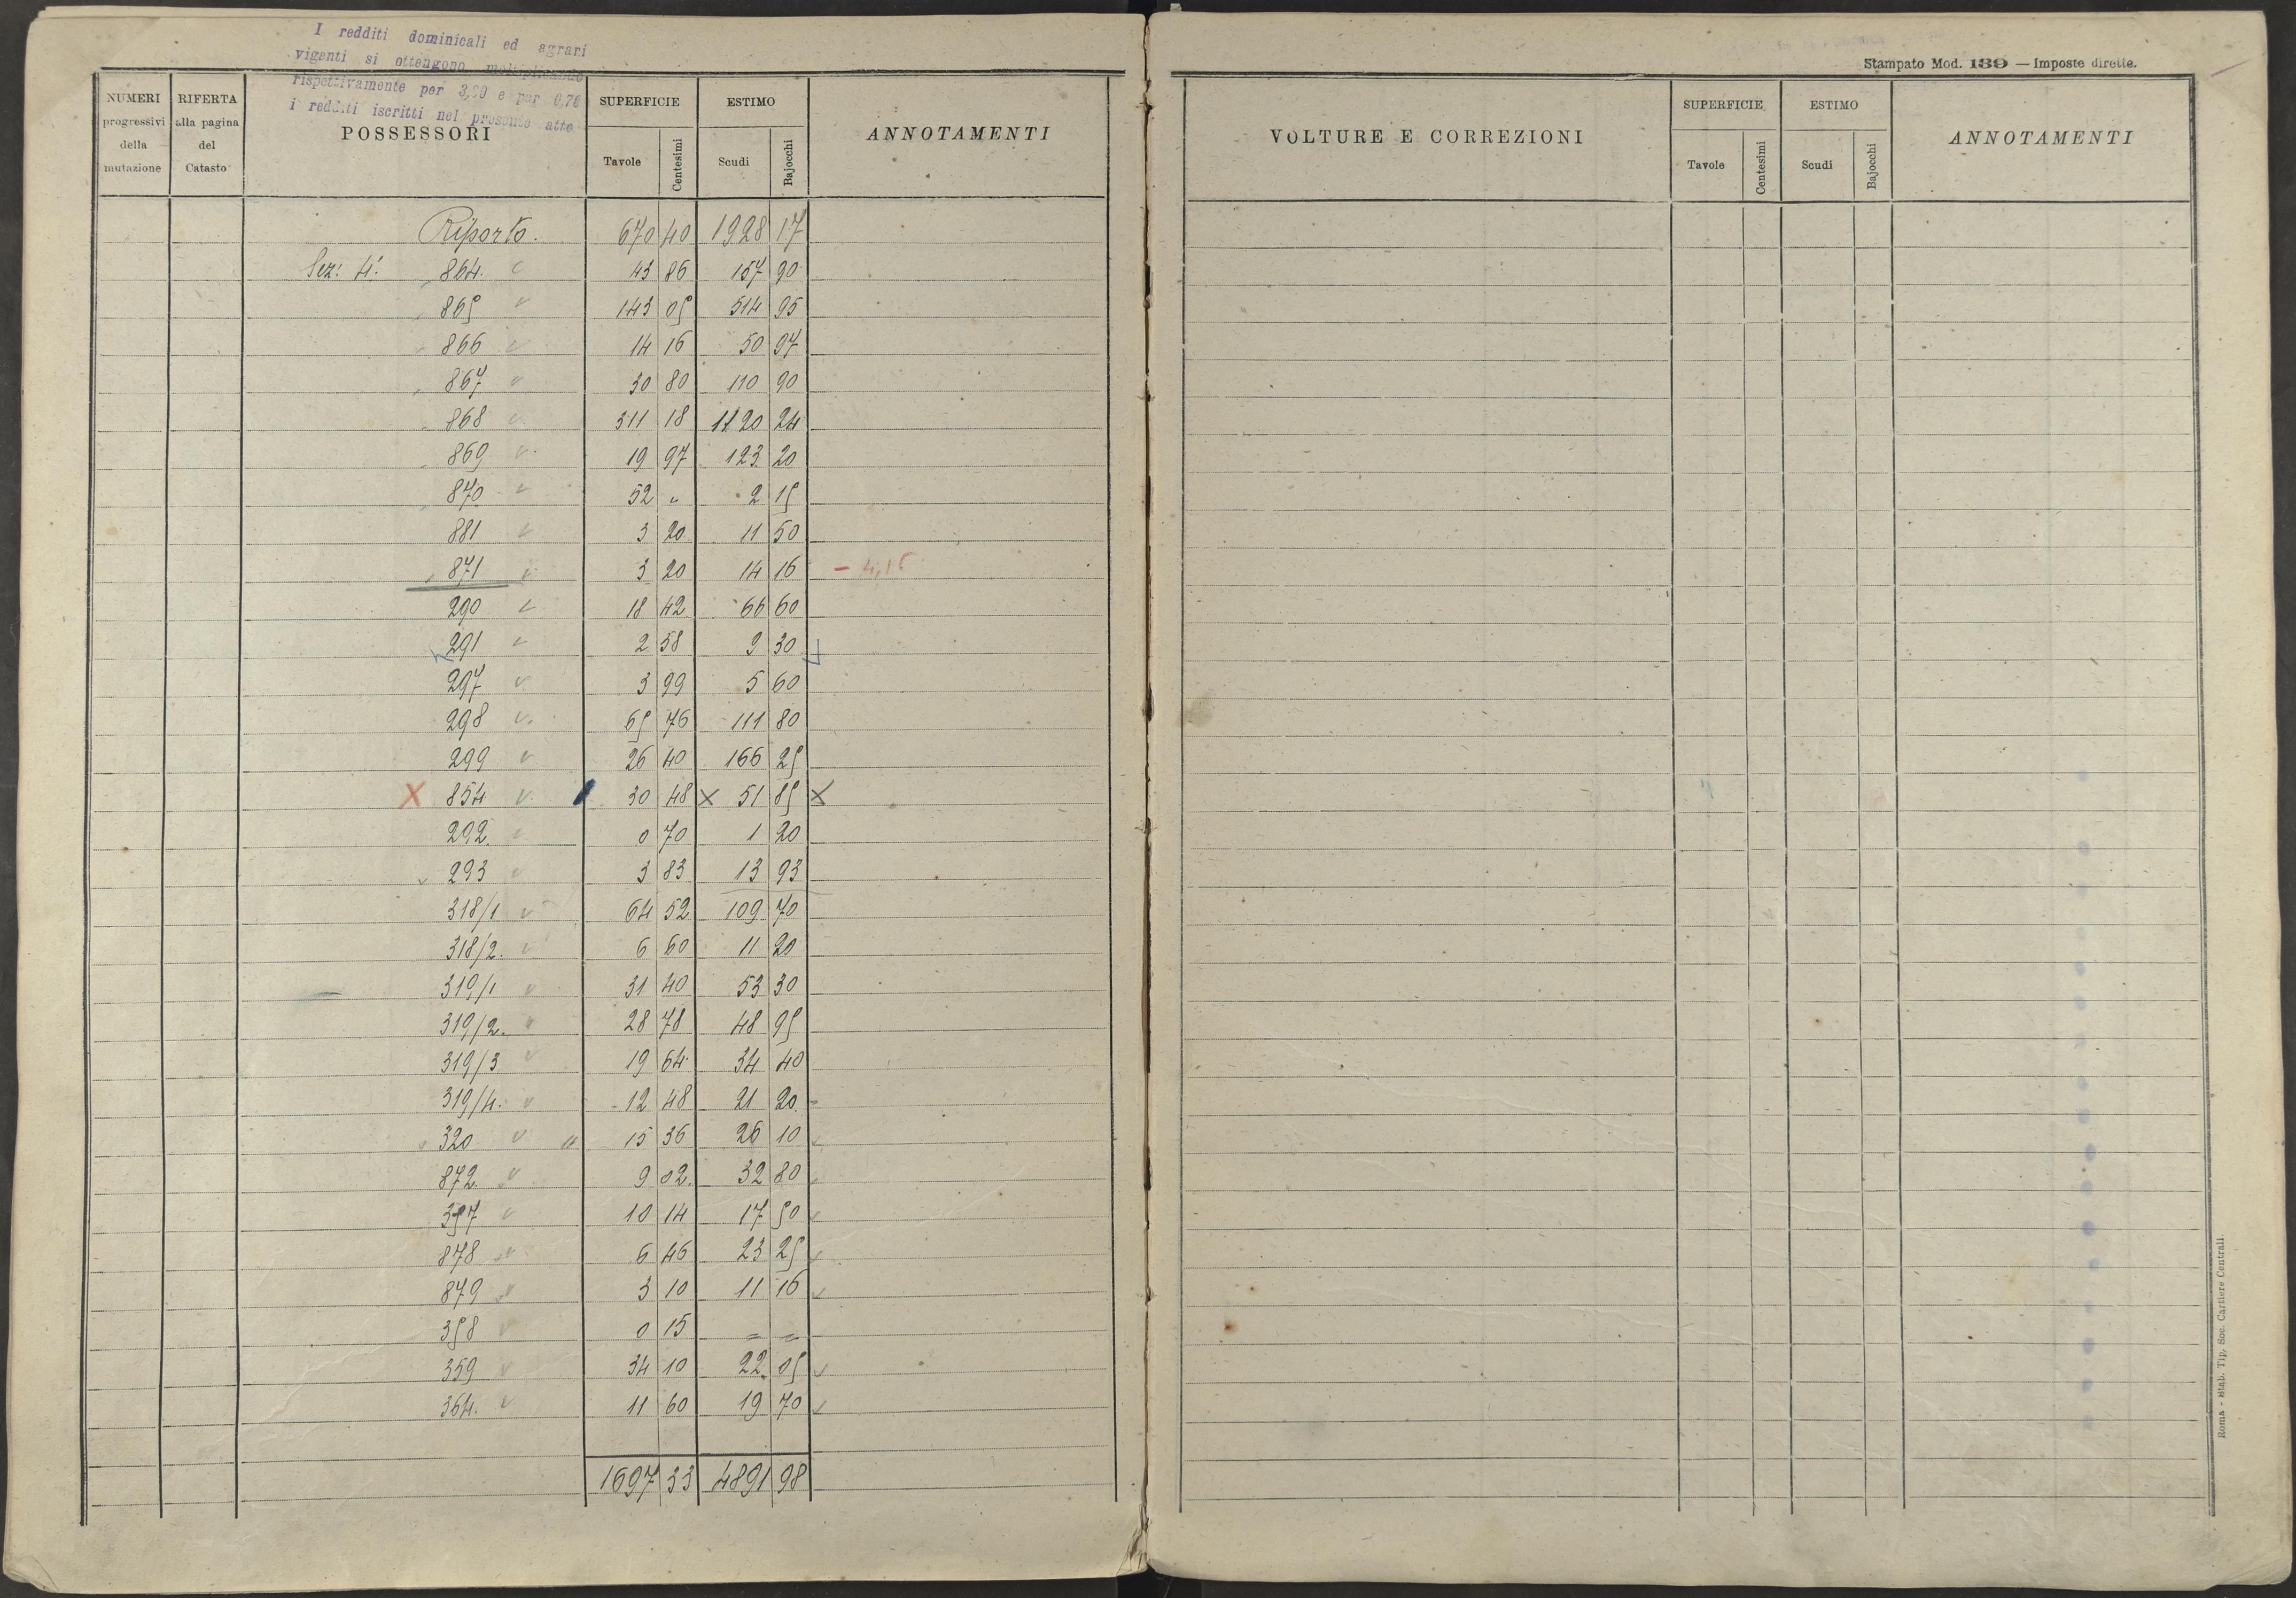 I redditi dominicali ed agrari
vigenti si ottengono moltiplicando
rispettivamente per 3,20 e per 0,70
i redditi iscritti nel presente atto
NUMERI progressivi della mutazione
RIFERTA alla pagina del Catasto
POSSESSORI
SUPERFICIE
Tavole Centesimi
ESTIMO
Scudi Bajocchi
ANNOTAMENTI
Riporto. 670 40 1928 17
Sez: 4ª 864. 43 86 157 90
865 143 05 514 95
866 14 16 50 97
867 30 80 110 90
868 311 18 1120 24
869 19 97 123 20
870 52 „ 2 15
881 3 20 11 50
871 3 20 14 16 - 4,15
290 18 42 66 60
291 2 58 9 30
297 3 99 5 60
298 65 76 111 80
299 26 40 166 25
X 854 30 48 X 51 85 X
292. 0 70 1 20
293 3 83 13 93
318/1 64 52 109 70
318/2. 6 60 11 20
319/1 31 40 53 30
319/2. 28 78 48 95
319/3 19 64 34 40
319/4. 12 48 21 20
320 15 36 26 10
872. 9 02. 32 80
357 10 14 17 50
878 6 46 23 25
879 3 10 11 16
358 0 15 = =
359 34 10 22 05
364. 11 60 19 70
1697 33 4891 98
Stampato Mod. 139 — Imposte dirette.
VOLTURE E CORREZIONI
SUPERFICIE
Tavole Centesimi
ESTIMO
Scudi Bajocchi
ANNOTAMENTI
Roma - Stab. Tip. Soc. Cartiere Centrali